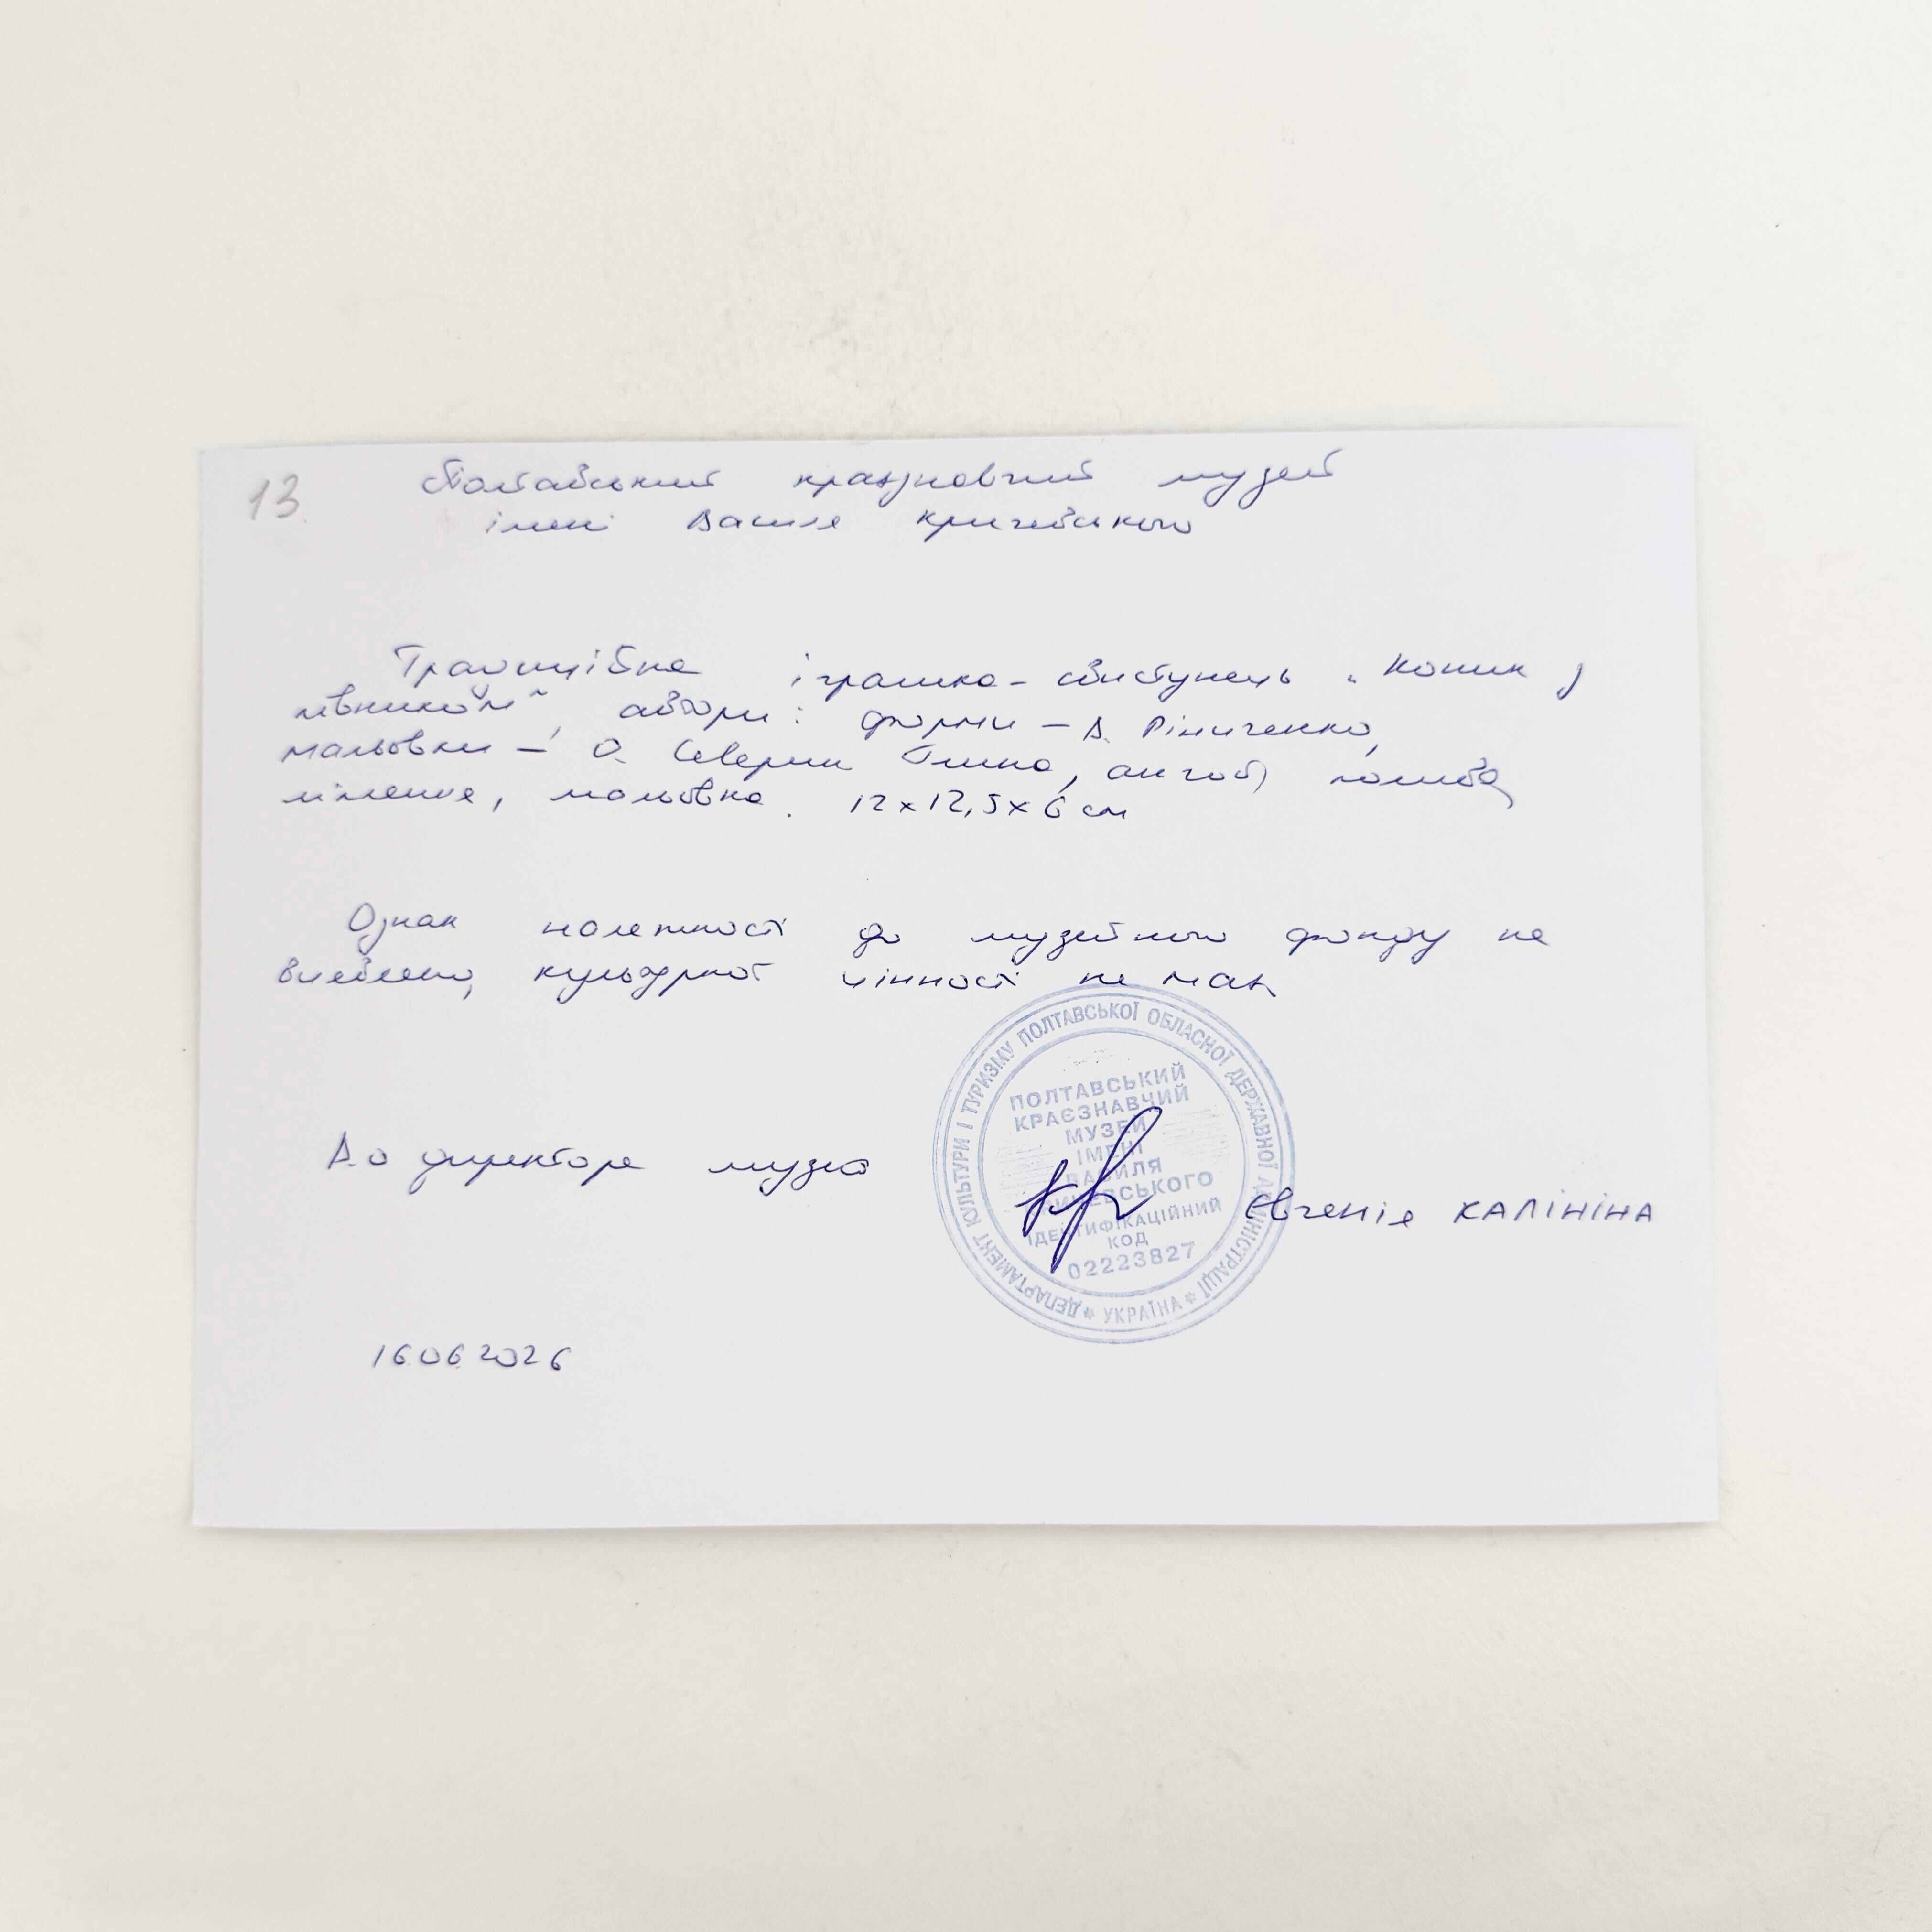 13
Полтавський краєзнавчий музей
імені Василя Кричевського
Традиційна іграшка-свистунець „Коник з
півником", автори: форми – В. Ріниченко,
мальовки – О. Северин глина, ангоб, полива,
ліплення, мальовка. 12х12,5х6 см
Ознак належності до музейного фонду не
виявлено, культурної цінності не має
В.о директора музею
Євгенія КАЛІНІНА
16.06.2026
ДЕПАРТАМЕНТ КУЛЬТУРИ І ТУРИЗМУ ПОЛТАВСЬКОЇ ОБЛАСНОЇ ДЕРЖАВНОЇ АДМІНІСТРАЦІЇ
* УКРАЇНА *
ПОЛТАВСЬКИЙ
КРАЄЗНАВЧИЙ
МУЗЕЙ
ІМЕНІ
ВАСИЛЯ
КРИЧЕВСЬКОГО
ІДЕНТИФІКАЦІЙНИЙ
КОД
02223827